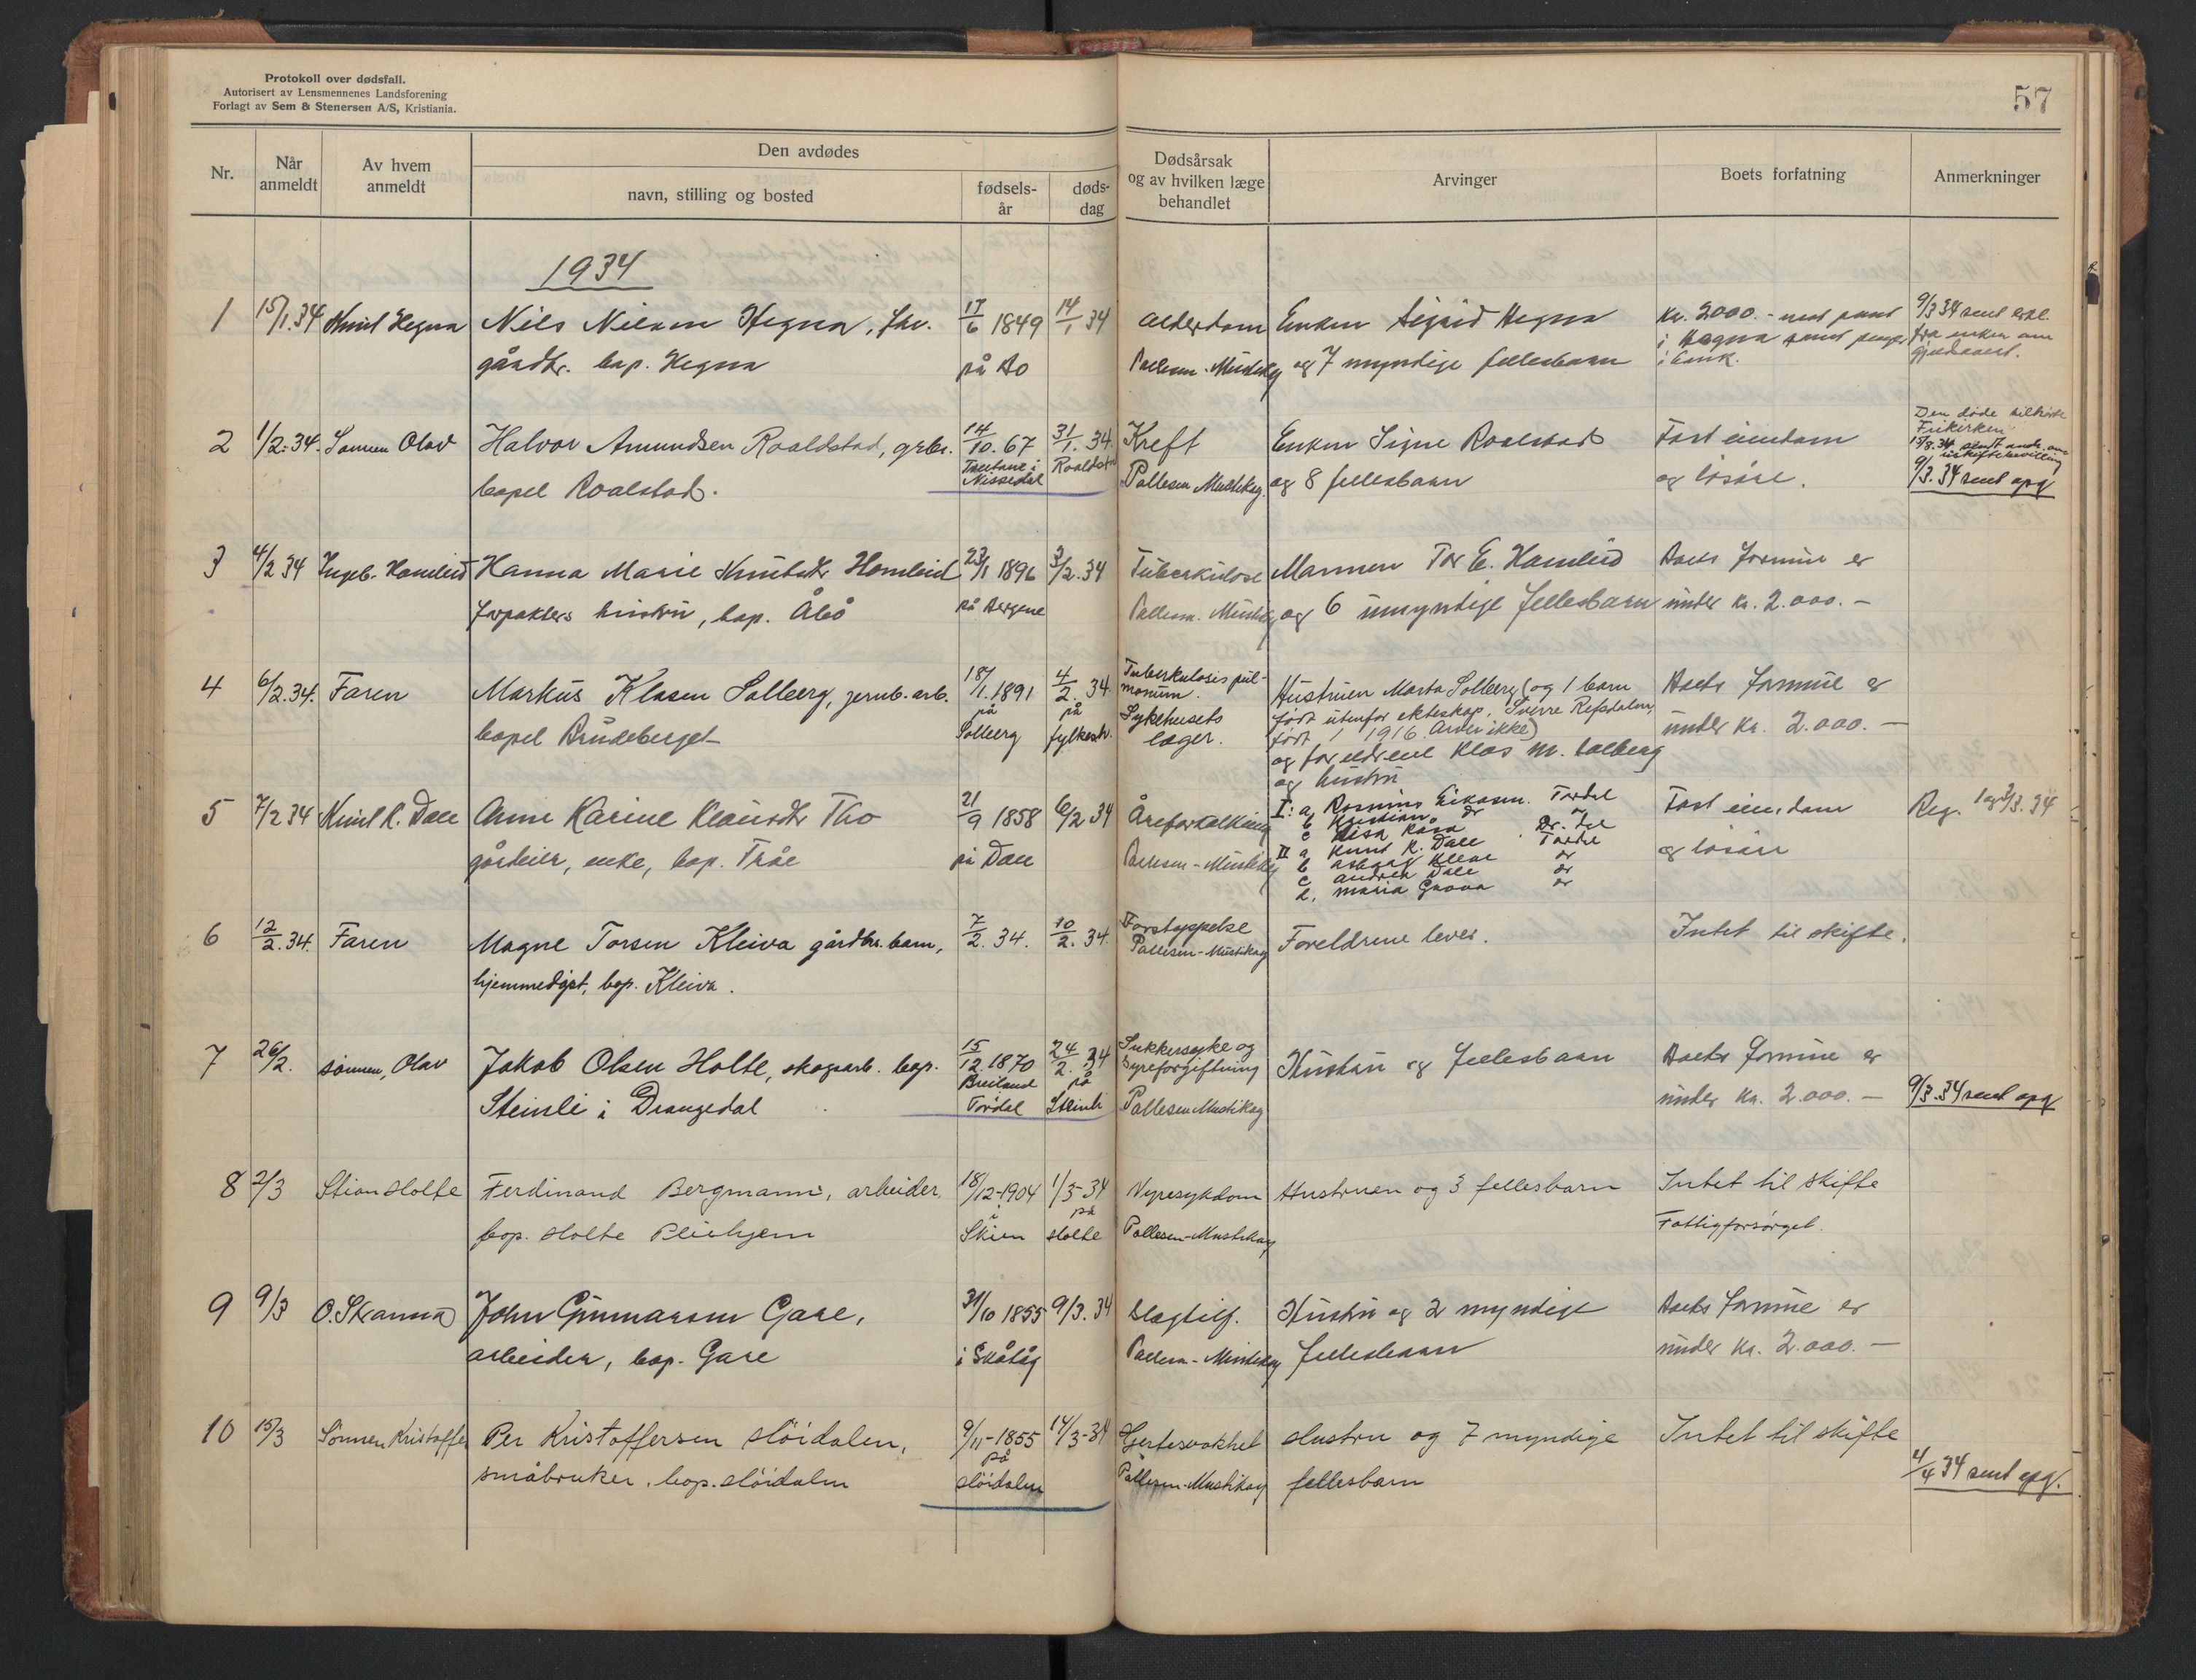 Protokoll over dødsfall.
Autorisert av Lensmennenes Landsforening
Forlagt av Sem & Stenersen A/S, Kristiania.
57
Nr.
Når anmeldt
Av hvem anmeldt
Den avdødes
navn, stilling og bosted
fødsels-år
døds-dag
Dødsårsak og av hvilken læge behandlet
Arvinger
Boets forfatning
Anmerkninger
1934
1 15/1.34 Knut Hegna Nils Nilsen Hegna, fhv. 17/6 1849 14/1 34 Alderdom Enken Sigrid Hegna Kr. 2000.- med pant 9/3 34 sent erkl.
gårdbr. bop. Hegna på Bo Pallesen-Mustikag og 7 myndige fellesbarn i Hegna samt penger fra enken om
i bank. gjeldsovert.
2 1/2.34. Sønnen Olav Halvor Amundsen Roaldstad, grbr. 14/10.67 31/1.34. Kreft Enken Signe Roalstad Fast eiendom Den døde tilhørte
Frikirken
bopel Roalstad. Treitane i Nissedal Roaldstad Pallesen Mustikag. og 8 fellesbarn og løsøre. 15/3.34 sendt ands. om
uskiftebevilling
9/3.34 sent opg
3 4/2 34 Ingeb. Homleid Hanna Marie Knutsdtr Homleid 23/1 1896 3/2.34 Tuberkulose Mannen Tor E. Homleid Boets formue er
forpakters hustru, bop. Åbo på Bergene Pallesen-Mustikag og 6 umyndige fellesbarn under kr. 2.000.-
4 6/2.34. Faren Markus Klasen Solberg, jernb.arb. 18/1.1891 4/2.34. Tuberkulosis pulmonum. Hustruen Marta Solberg (og 1 barn Boets formue er
bopel Brudeberget på Solberg på fylkesh. Sykehusets læger. født utenfor ekteskap, Sverre Refsdalen, under kr. 2.000.-
født / 1916. Arver ikke)
og foreldrene Klas M. Solberg
og hustru
5 7/2 34 Knut K. Dale Anne Karine Klausdtr Tho 21/9 1858 6/2 34 Åreforkalkning I: a, Rasmus Eikåsen. Tørdal Fast eiendom Reg. 1 og 3/3.34
b Kristian do
c Lisa Råsa Dr.dal
gårdeier, enke, bop. Tråe på Dale Pallesen-Mustikag II a Knut K. Dale Tørdal og løsøre
b Kleva do
c Andrea Dale do
d, Maria do
6 12/2.34. Faren Magne Torsen Kleiva gårdbr. barn, 7/2.34. 10/2.34. Forstoppelse Foreldrene lever. Intet til skifte.
hjemmedøpt, bop. Kleiva. Pallesen-Mustikag
7 26/2. sønnen, Olav Jakob Olsen Holte, skogsarb. bop. 15/12.1870 24/2.34 Sukkersyke og Hustru og fellesbarn Boets formue er
Syreforgiftning
Steinli i Drangedal Breiland Tørdal på Steinli Pallesen Mustikag under kr. 2.000.- 9/3.34 sent opg
8 2/3 Stian Holte Ferdinand Bergmann, arbeider. 18/12-1904 1/3-34 Nyresykdom Hustruen og 3 fellesbarn Intet til skifte
bop. Holte Pleiehjem i Skien på Holte Pallesen-Mustikag Fattigforsørget.
9 9/3 O. Strannå John Gunnarsen Gare, 31/10 1855 9/3.34 Slagtilf. Hustru og 2 myndige Boets formue er
arbeider, bop. Gare i Skåtøy Pallesen-Mustikag fellesbarn under kr. 2.000.-
10 15/3 Sønnen Kristoffer Per Kristoffersen Høidalen, 9/11-1855 14/3-34 Hjertesvakhet Hustru og 7 myndige Intet til skifte
småbruker. bop. Høidalen på Høidalen Pallesen-Mustikag fellesbarn 4/4 34 sent opg.